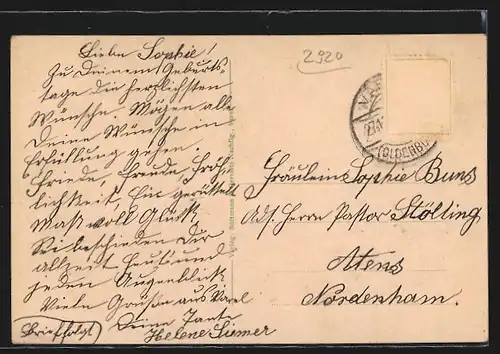 Liebe Sophie!
Zu Deinem Geburts-
tage die herzlichsten
Wünsche. Mögen alle
Deine Wünsche in
Erfüllung gehen.
Friede, Freude, Fröh-
lichkeit, Ein gerüttelt
Maß voll Glück
beschieden Dir
allzeit heut und
jeden Augenblick
Viele Grüße aus Varel
Deine Tante
Helene Siemer
Brief folgt
2920
(OLDENBU
Fräulein Sophie Buns
Adr. Herrn Pastor Stölting
Atens
Nordenham.